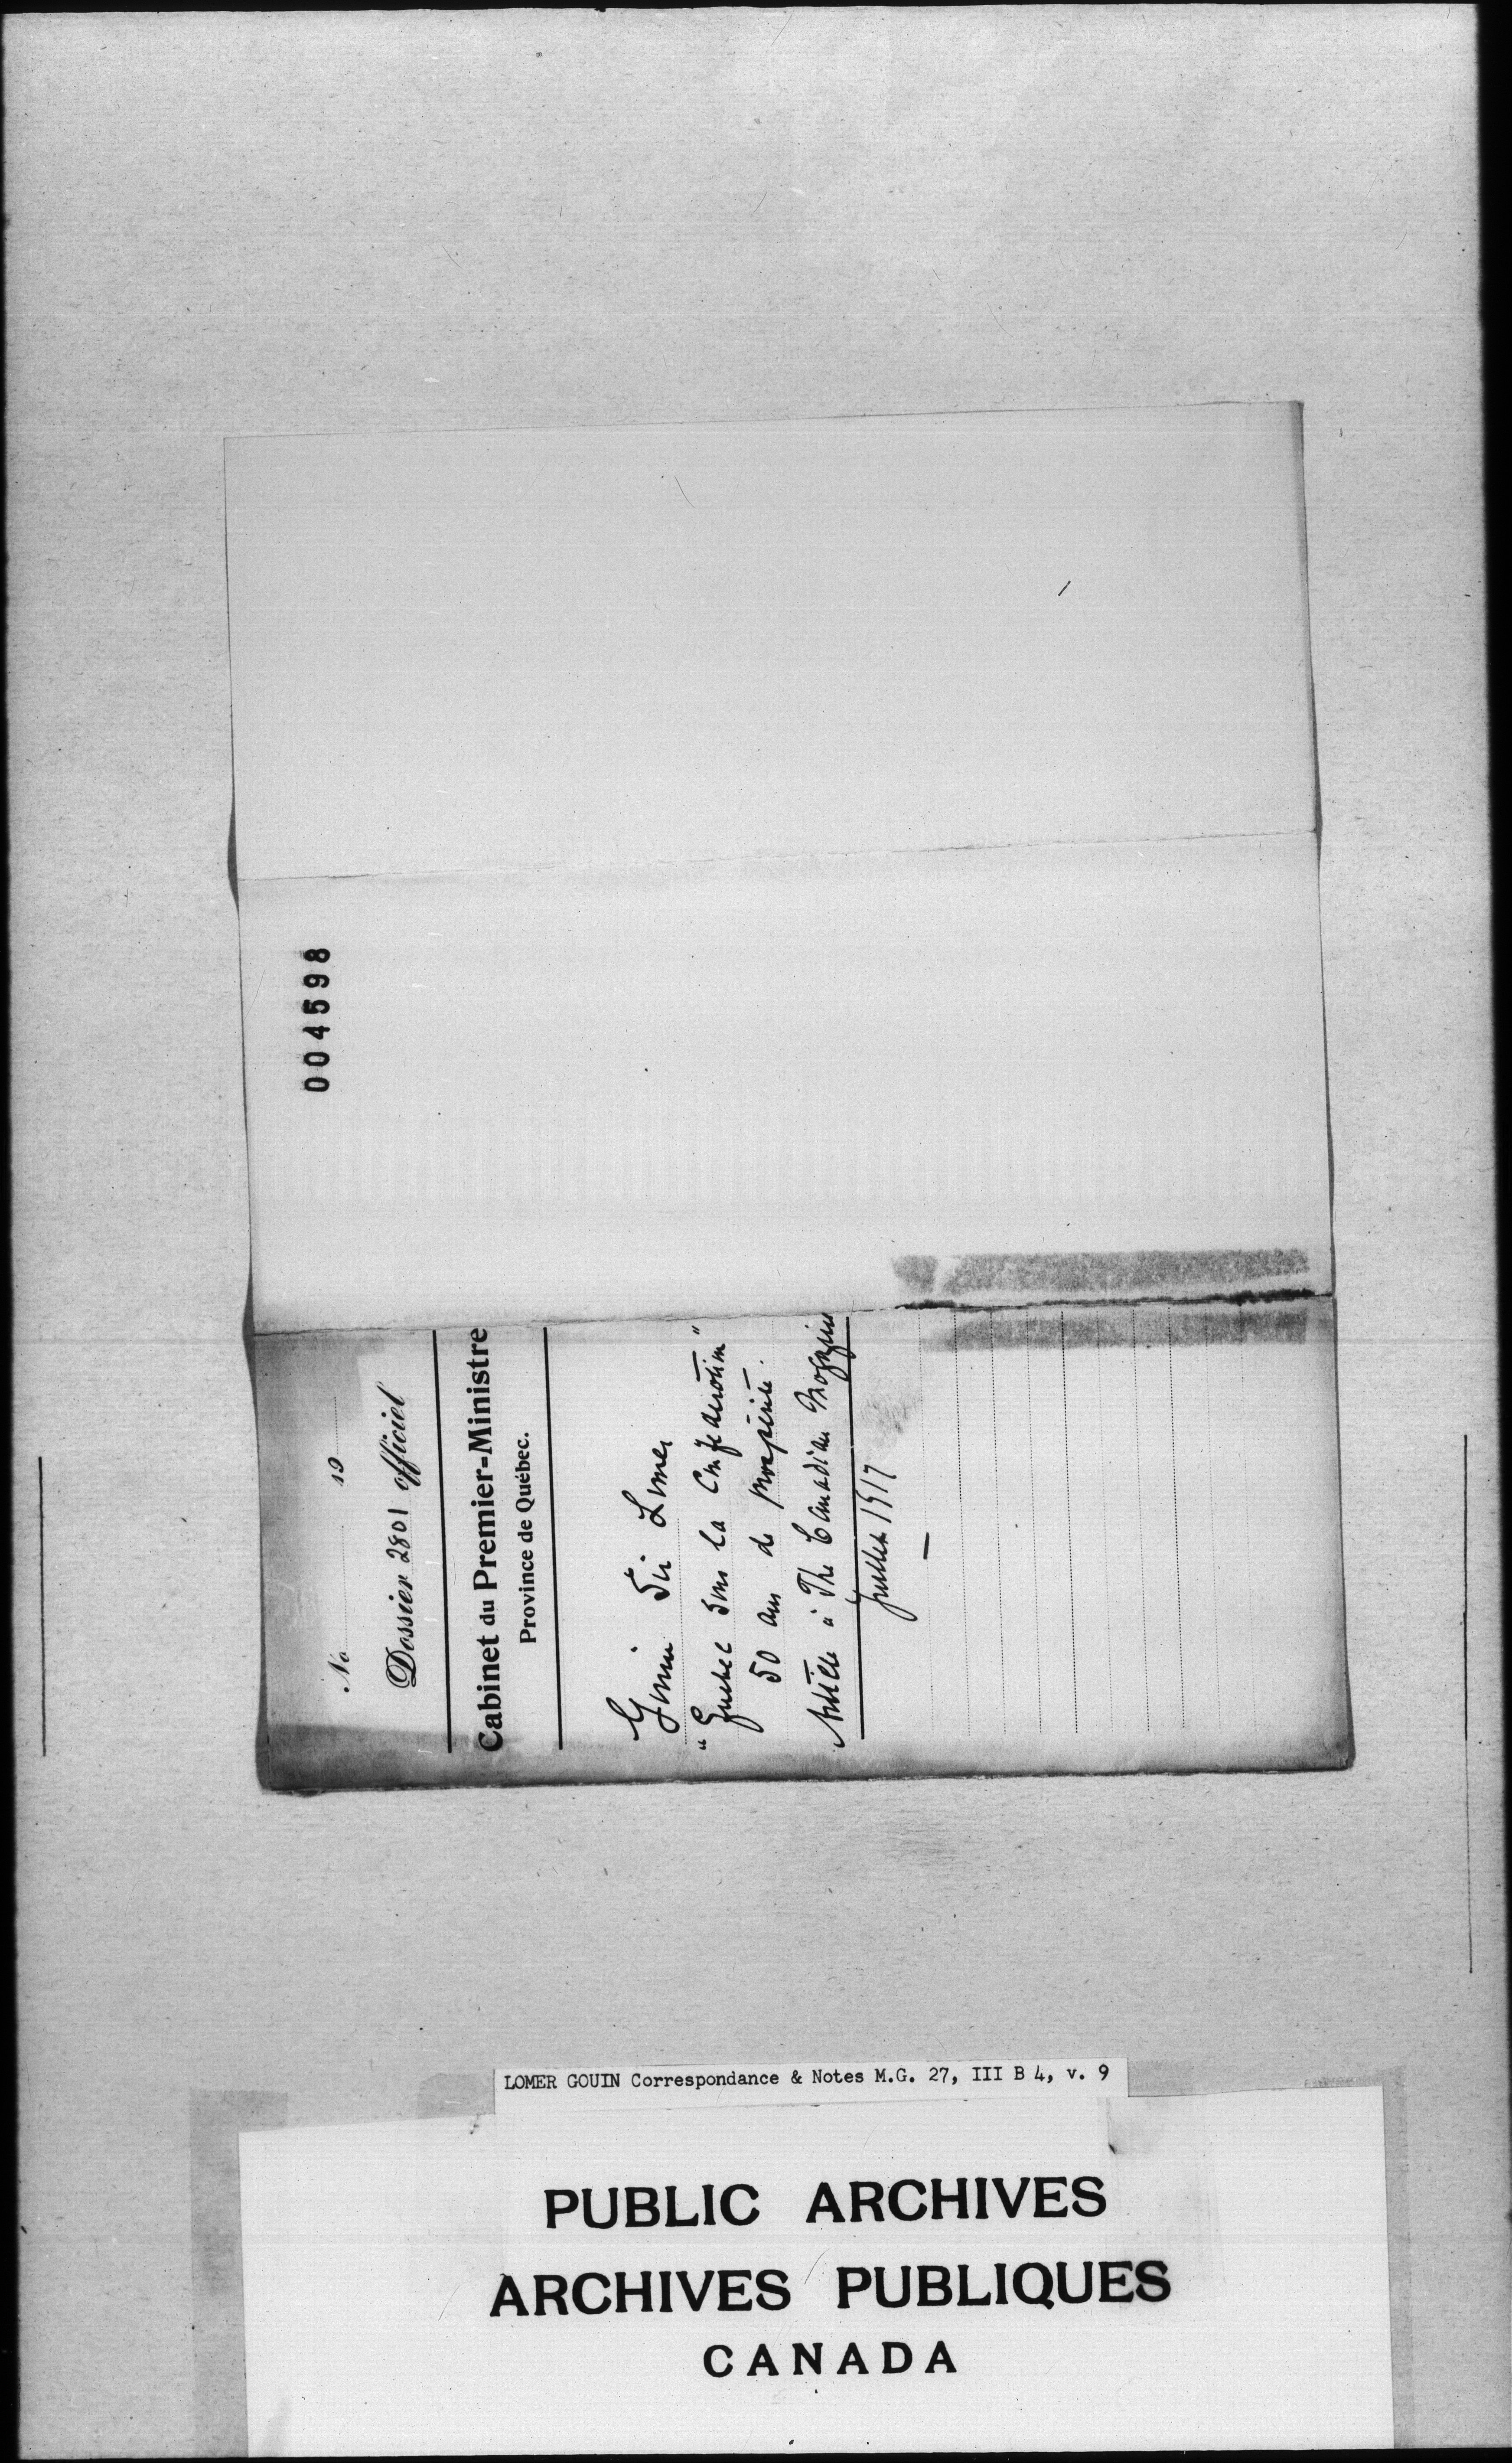 004598
No 19
Dossier 2801 officiel
Cabinet du Premier-Ministre
Province de Québec.
Gouin Sir Lomer
"Quebec sous la Confédération"
50 ans de prospérité.
Article à The Canadian Magazine
Juillet 1917
LOMER GOUIN Correspondance & Notes M.G. 27, III B 4, v. 9
PUBLIC ARCHIVES
ARCHIVES PUBLIQUES
CANADA